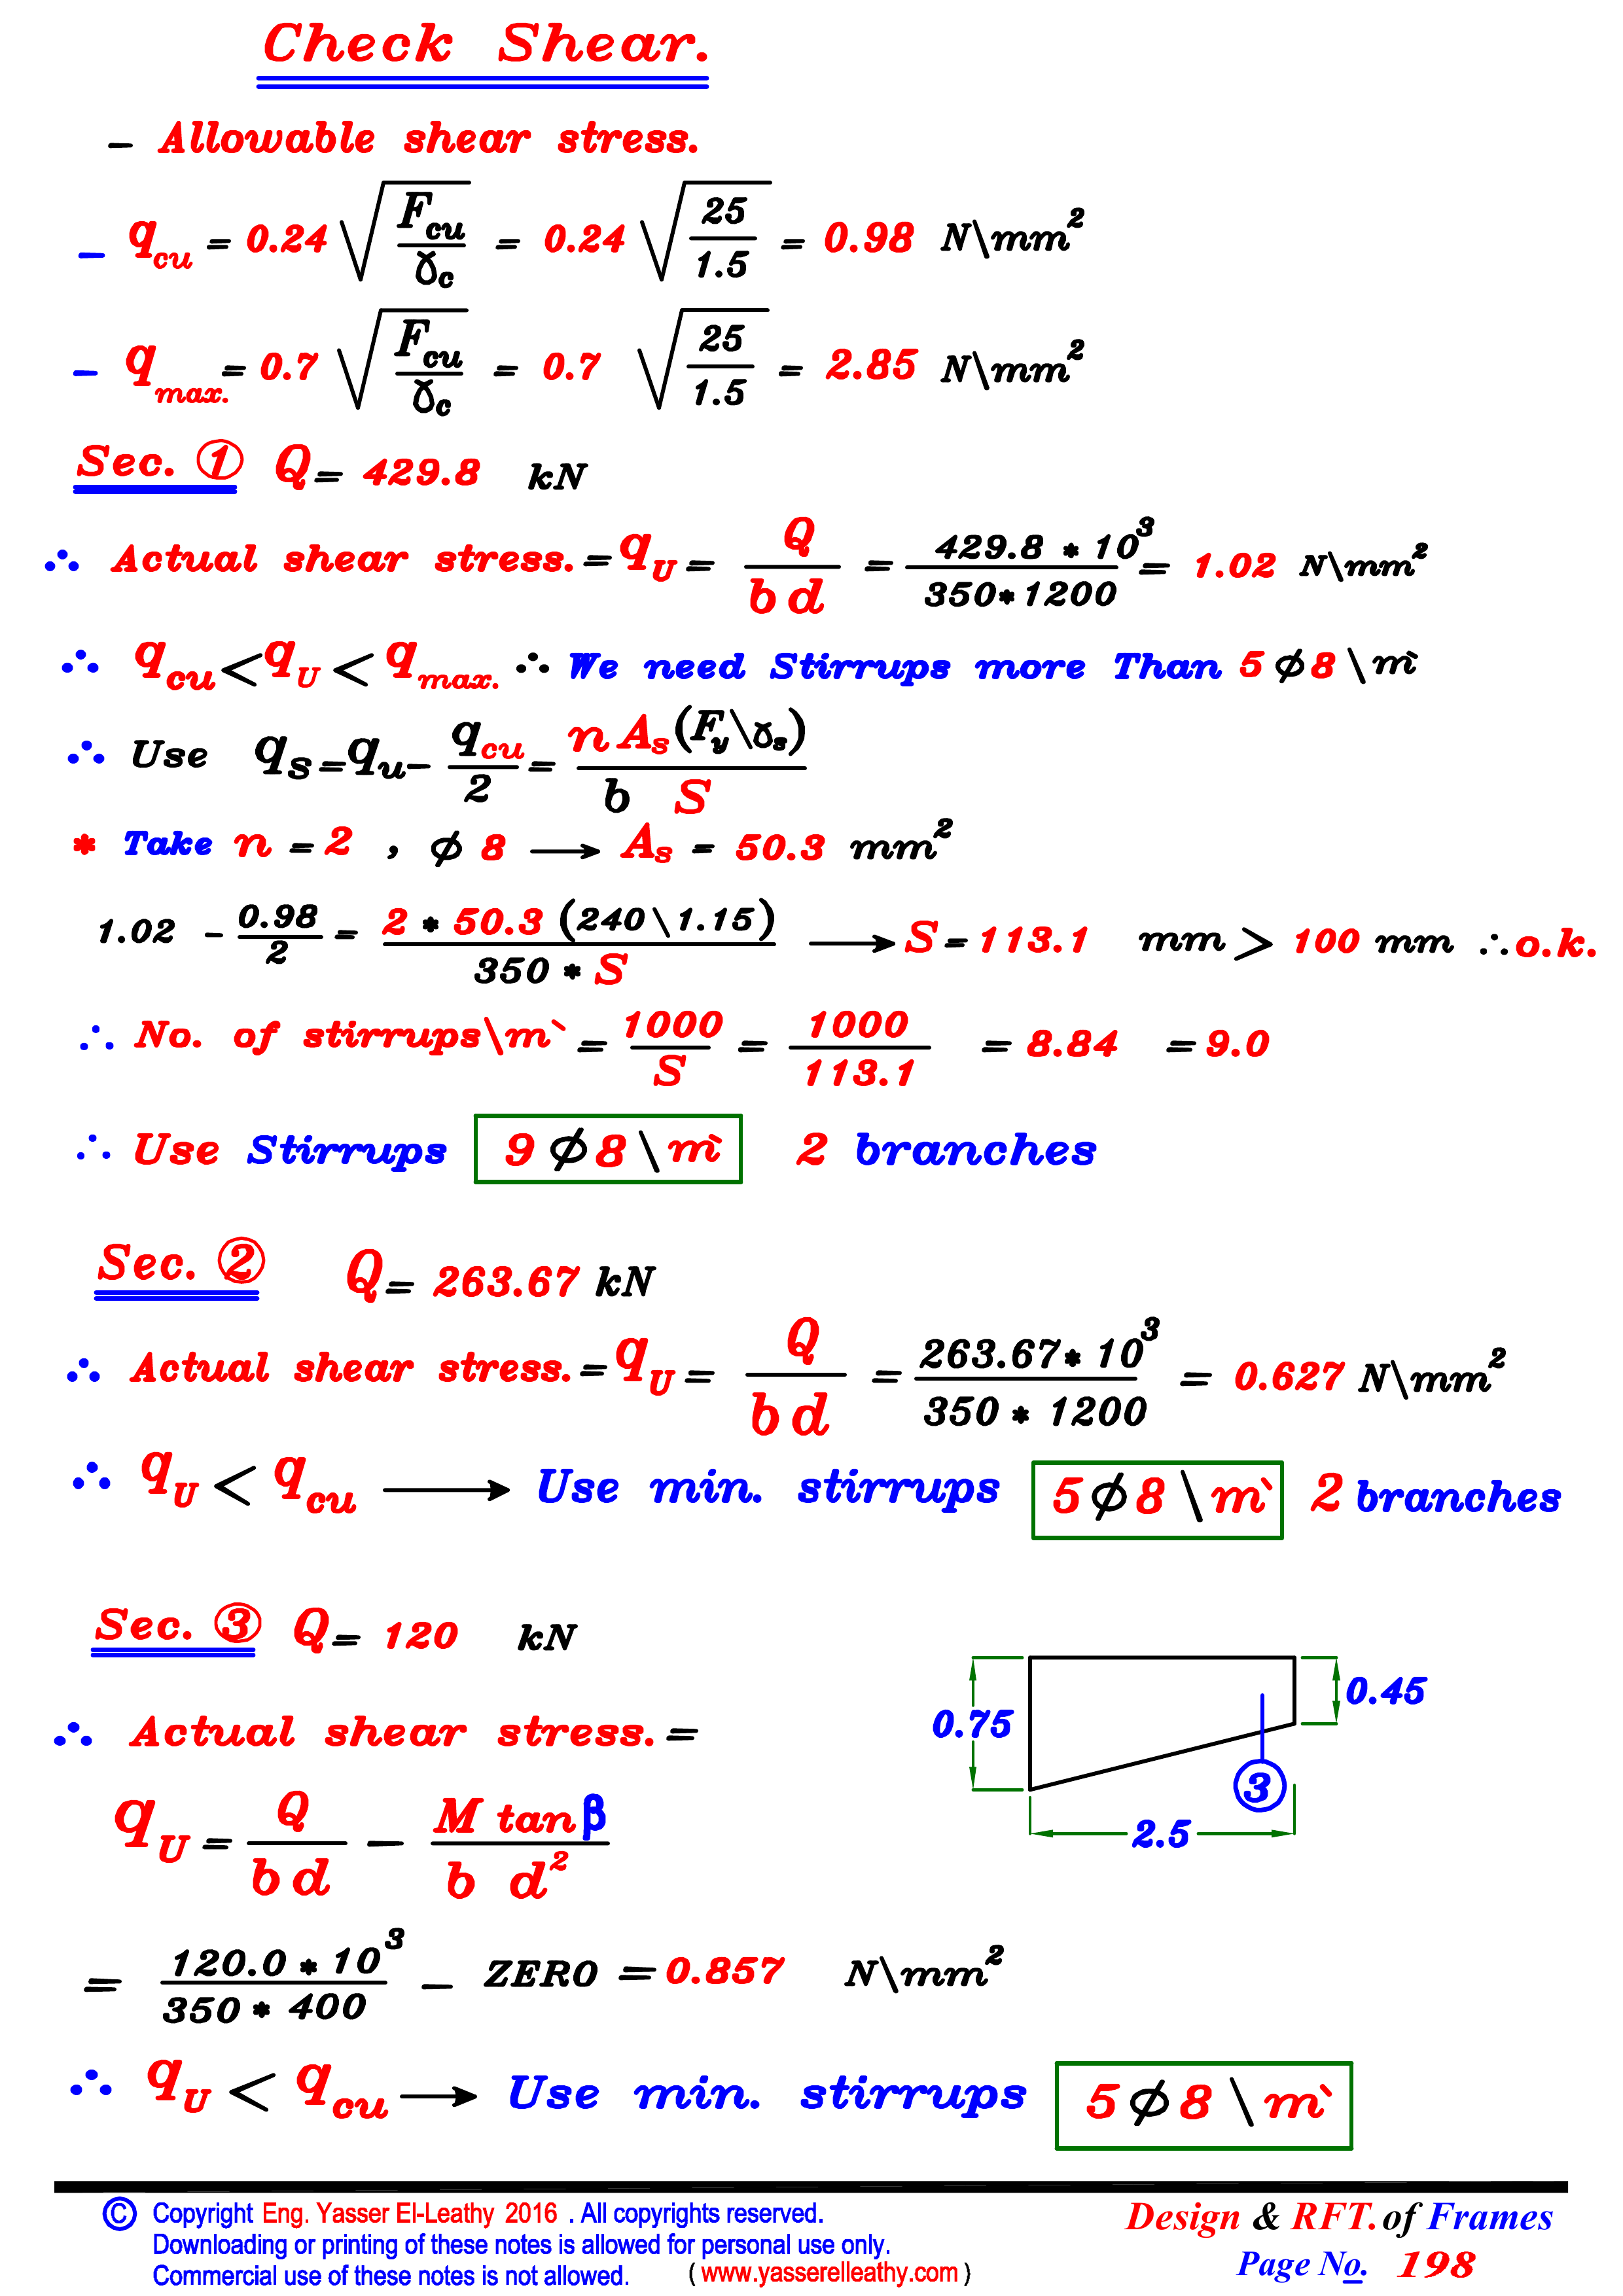 Check Shear.
- Allowable shear stress.
- qcu = 0.24 √(Fcu / ɣc) = 0.24 √(25 / 1.5) = 0.98 N\mm²
- qmax. = 0.7 √(Fcu / ɣc) = 0.7 √(25 / 1.5) = 2.85 N\mm²
Sec. ① Q = 429.8 kN
∴ Actual shear stress. = qU = Q / b d = 429.8 * 10³ / 350*1200 = 1.02 N\mm²
∴ qcu < qU < qmax. ∴ We need Stirrups more Than 5 ϕ 8 \ m`
∴ Use qS = qu - qcu / 2 = n As (Fy\ɣs) / b S
* Take n = 2 , ϕ 8 → As = 50.3 mm²
1.02 - 0.98 / 2 = 2 * 50.3 (240\1.15) / 350 * S → S = 113.1 mm > 100 mm ∴ o.k.
∴ No. of stirrups\m` = 1000 / S = 1000 / 113.1 = 8.84 = 9.0
∴ Use Stirrups 9 ϕ 8 \ m` 2 branches
Sec. ② Q = 263.67 kN
∴ Actual shear stress. = qU = Q / b d = 263.67* 10³ / 350 * 1200 = 0.627 N\mm²
∴ qU < qcu → Use min. stirrups 5 ϕ 8 \ m` 2 branches
Sec. ③ Q = 120 kN
0.75
0.45
③
2.5
∴ Actual shear stress. =
qU = Q / b d - M tan β / b d²
= 120.0 * 10³ / 350 * 400 - ZERO = 0.857 N\mm²
∴ qU < qcu → Use min. stirrups 5 ϕ 8 \ m`
© Copyright Eng. Yasser El-Leathy 2016 . All copyrights reserved.
Downloading or printing of these notes is allowed for personal use only.
Commercial use of these notes is not allowed. ( www.yasserelleathy.com )
Design & RFT. of Frames
Page No. 198